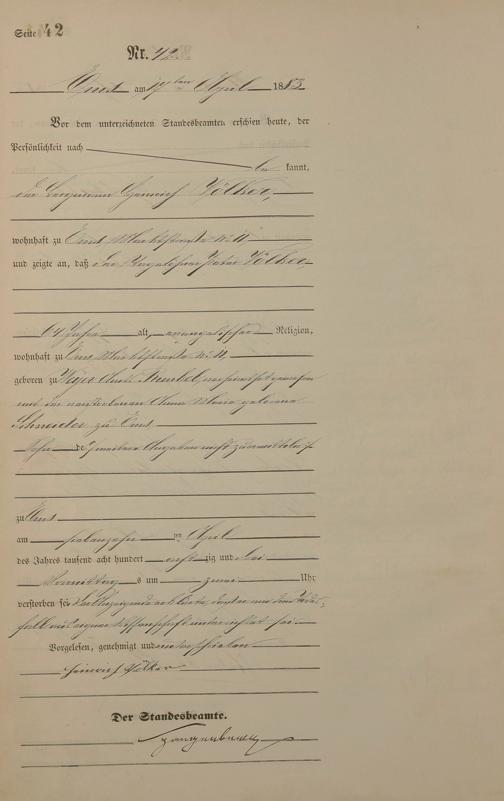 Seite 42
Nr. 42.
Ems am 17ten April 1883.
Vor dem unterzeichneten Standesbeamten erschien heute, der
Persönlichkeit nach
be kannt,
der Bergmann Heinrich Völker,
wohnhaft zu Ems Marktstraße No 11
und zeigte an, daß der Peter Völker,
64 Jahre alt, evangelischer Religion,
wohnhaft zu Ems Marktstraße No 11
geboren zu verheirathet gewesen
mit der verstorbenen Anna Maria geborene
Schneider zu Ems
Sohn de weitere Angaben nicht zu ermitteln
zu Ems
am siebenzehn ten April
des Jahres tausend acht hundert acht zig und drei
Vormittag s um Uhr
verstorben sei
Vorgelesen, genehmigt und unterschrieben
Heinrich Völker
Der Standesbeamte.